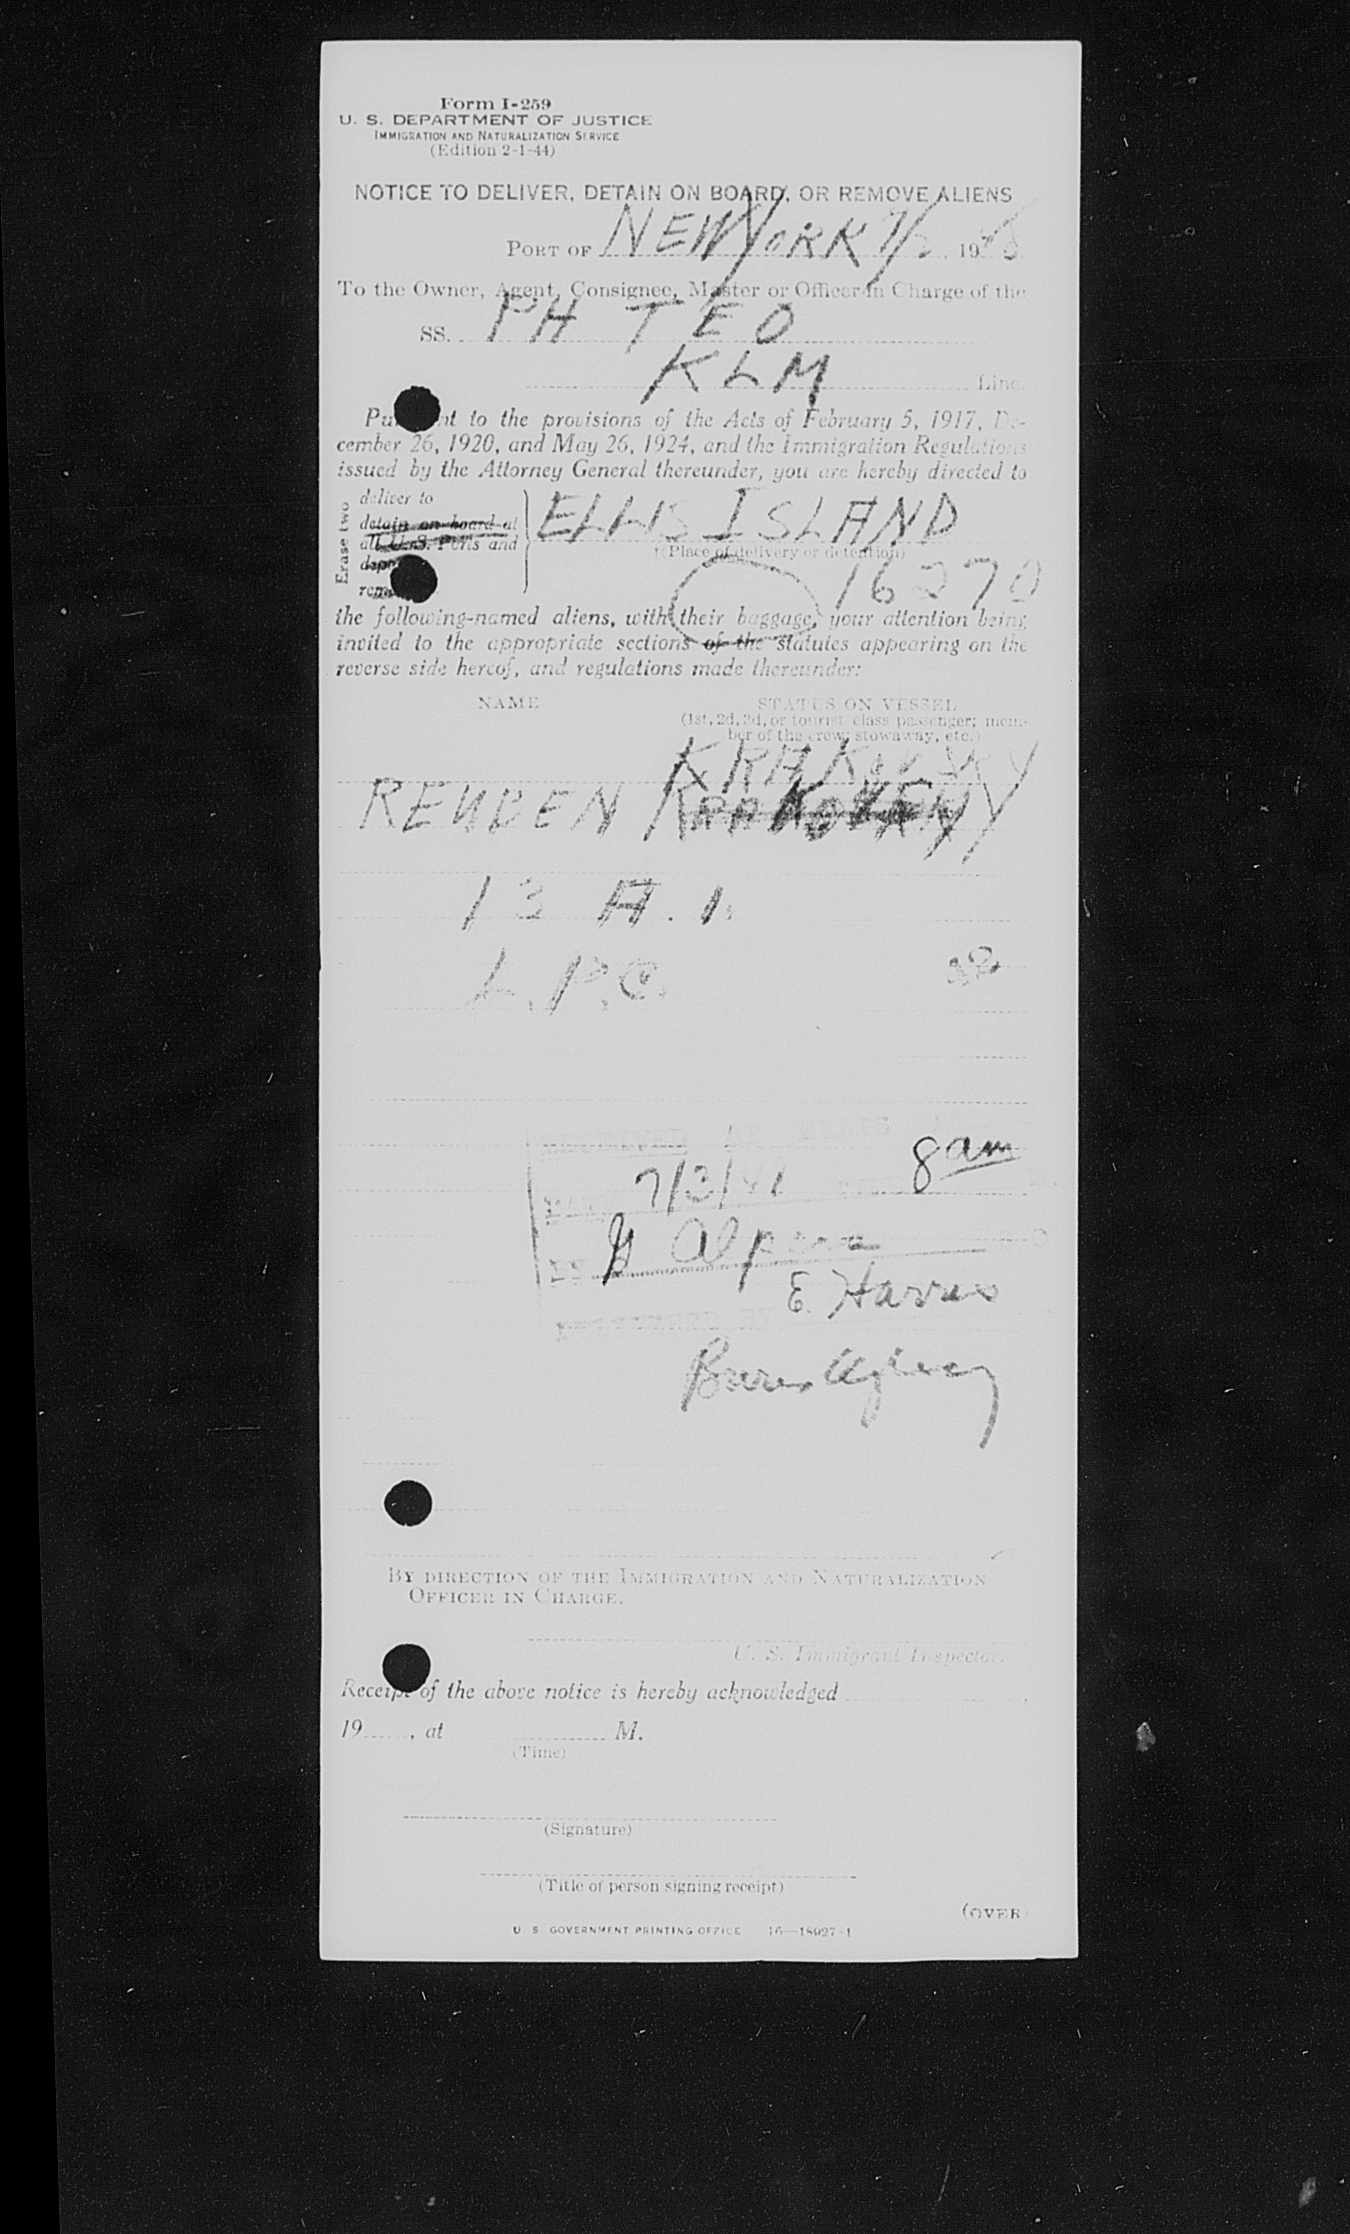 Form I-259
U. S. DEPARTMENT OF JUSTICE
IMMIGRATION AND NATURALIZATION SERVICE
(Edition 2-1-44)
NOTICE TO DELIVER, DETAIN ON BOARD, OR REMOVE ALIENS
PORT OF NEW YORK 7/2, 1948
To the Owner, Agent, Consignee, Master or Officer in Charge of the
SS. PH TEO
KLM Line.
Pu nt to the provisions of the Acts of February 5, 1917, De-
cember 26, 1920, and May 26, 1924, and the Immigration Regulations
issued by the Attorney General thereunder, you are hereby directed to
Erase two
deliver to
detain on board at
all U. S. Ports and
dep
rem
ELLIS ISLAND
(Place of delivery or detention)
16270
the following-named aliens, with their baggage, your attention being
invited to the appropriate sections of the statutes appearing on the
reverse side hereof, and regulations made thereunder:
NAME STATUS ON VESSEL
(1st, 2d, 3d, or tourist class passenger; mem-
ber of the crew, stowaway, etc.)
KRAKOVSKY
REUBEN
13 A. 1.
L. P. C.
8 am
7/3/48
E. Harris
BY DIRECTION OF THE IMMIGRATION AND NATURALIZATION
OFFICER IN CHARGE.
U. S. Immigrant Inspector.
Receipt of the above notice is hereby acknowledged
19 , at M.
(Time)
(Signature)
(Title of person signing receipt)
(OVER)
U. S. GOVERNMENT PRINTING OFFICE 16—18927-1